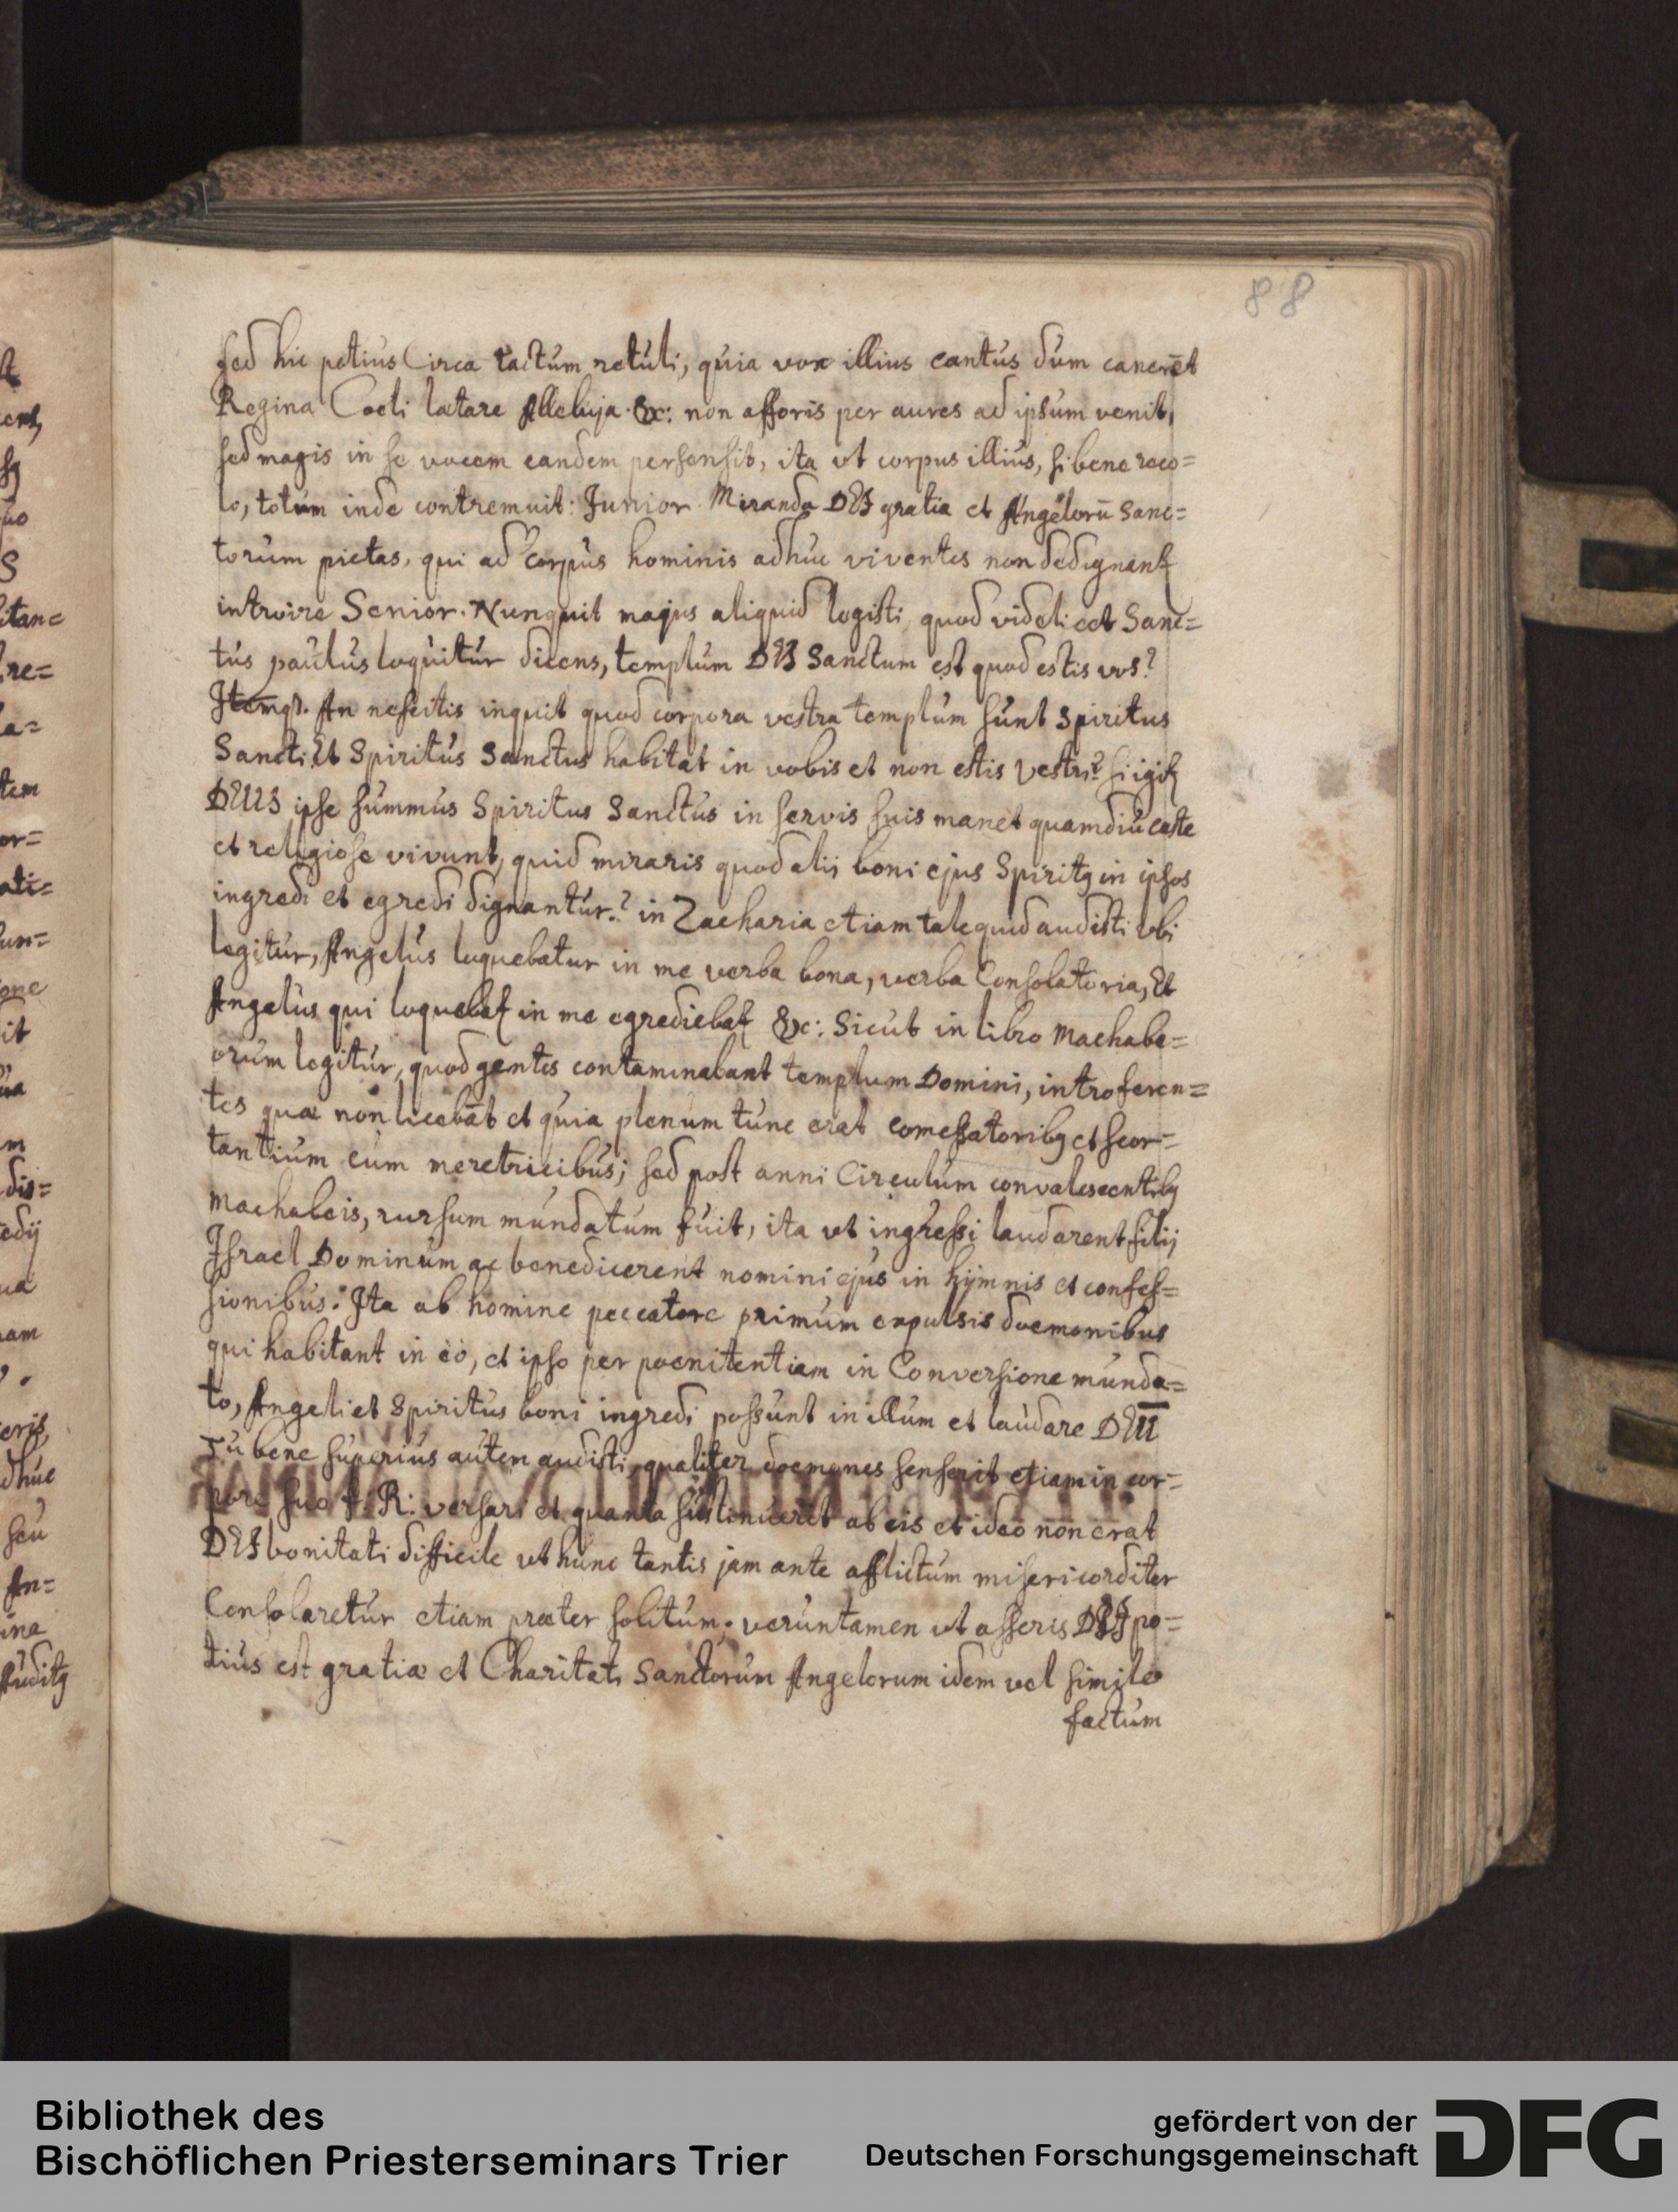 88
sed hic potius Circa tactum retuli, quia vox illius cantus dum canerēt
Regina Coeli latare Alleluja. &c: non afforis per aures ad ipsum venit,
sed magis in se vocem eandem persensit, ita ut corpus illius, si bene reco=
lo, totum inde contremuit: Junior. Miranda DEJ gratia et Angelorū Sanc=
torum pietas, qui ad Corpus hominis adhuc viventes non dedignant
introire Senior. Nunquit majus aliquid legisti, quod videlicet Sanc=
tus paulus loquitur dicens, templum DEI Sanctum est quod estis vos?
An nescitis inquit quod corpora vestra templum sunt Spiritus
Sancti, Et Spiritus Sanctus habitat in vobis et non estis Vestri? si igit
DEUS ipse summus Spiritus Sanctus in servis suis manet quamdiu caste
et religiose vivunt, quid miraris quod alij boni ejus Spiritq in ipsos
ingredi et egredi dignantur.? in Zacharia etiam tale quid audisti ubi
legitur, Angelus loquebatur in me verba bona, verba Consolatoria, Et
Angelus qui loquebat in me egrediebat &c: Sicut in libro Machabe=
orum legitur, quod gentes contaminabant templum Domini, introferen=
tes quæ non licebāt et quia plenum tunc erat comessatoribq et scor=
tantium cum meretricibus; sed post anni Circulum convalescentibq
Machabeis, rursum mundatum fuit, ita ut ingressi laudarent filij
Israel Dominum ac benedicerent nomini ejus in hÿmnis et confes=
sionibus. Ita ab homine peccatore primum expulsis doemonibus
qui habitant in eo, et ipso per poenitentiam in Conversione munda=
to, Angeli et Spiritus boni ingredi possunt in illum et laudare DEU̅
Tu bene superius autem audisti, qualiter doemones senserit etiam in cor=
pore suo f. R: versari et quanta sustinuerit ab eis et ideo non erat
DEJ bonitati difficile ut hunc tantis jam ante afflictum misericorditer
Consolaretur etiam præter solitum. veruntamen ut asseris DEJ po=
tius est gratiæ et Charitati Sanctorum Angelorum idem vel simile
factum
Bibliothek des
Bischöflichen Priesterseminars Trier
gefördert von der
Deutschen Forschungsgemeinschaft
DFG